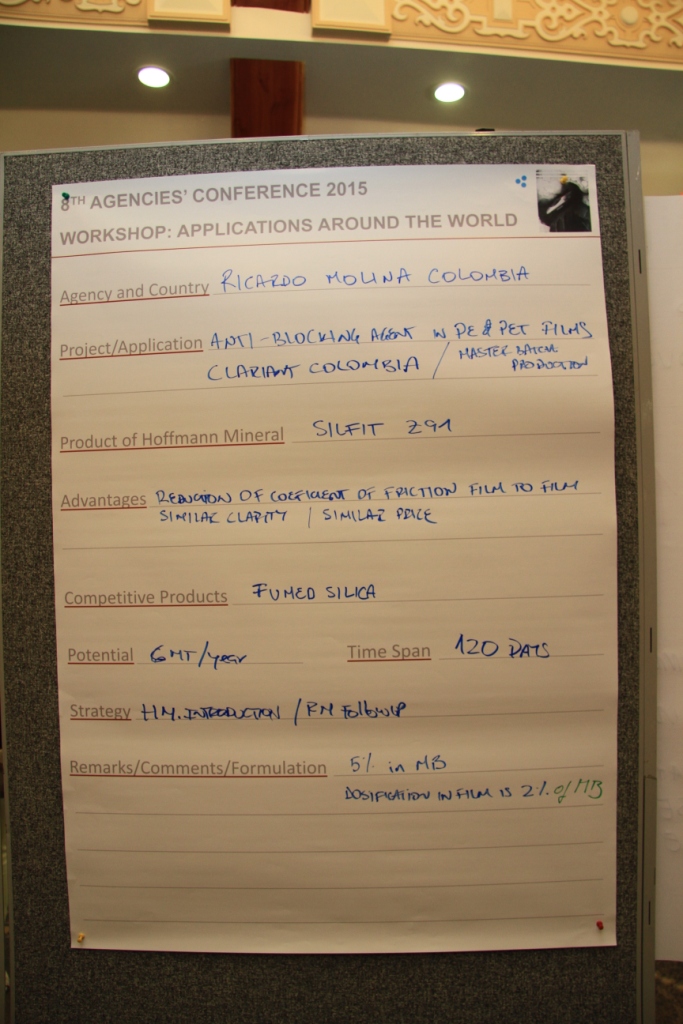 8TH AGENCIES' CONFERENCE 2015
WORKSHOP: APPLICATIONS AROUND THE WORLD
Agency and Country RICARDO MOLINA COLOMBIA
Project/Application ANTI-BLOCKING AGENT IN PE & PET FILMS
CLARIANT COLOMBIA / MASTER BATCH
PRODUCTION
Product of Hoffmann Mineral SILFIT Z91
Advantages REDUCTION OF COEFICIENT OF FRICTION FILM TO FILM
SIMILAR CLARITY / SIMILAR PRICE
Competitive Products FUMED SILICA
Potential 6 MT/year Time Span 120 DAYS
Strategy HM. INTRODUCTION / RM Followup
Remarks/Comments/Formulation 5% in MB
DOSIFICATION IN FILM IS 2% of MB